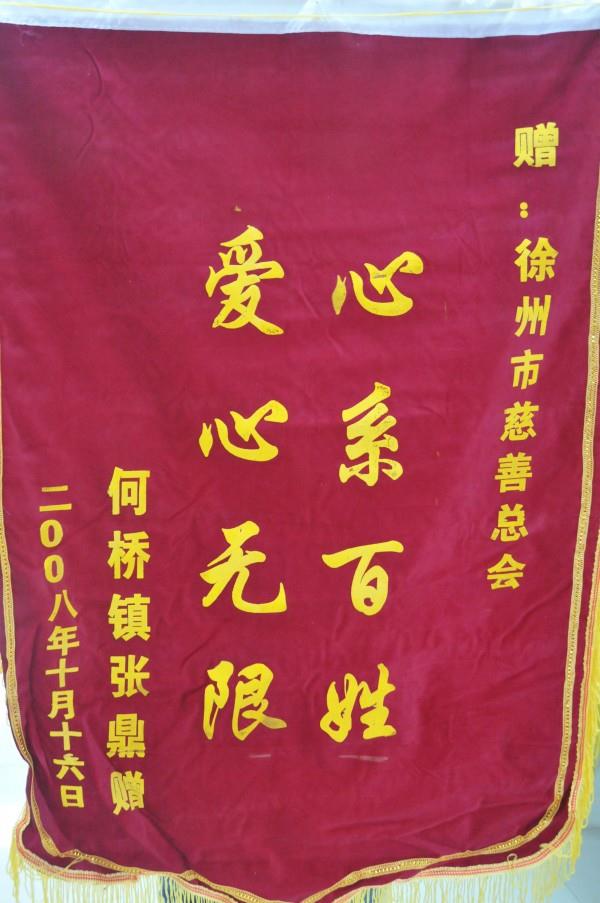 赠：徐州市慈善总会
心系百姓
爱心无限
何桥镇张鼎赠
二00八年十月十六日